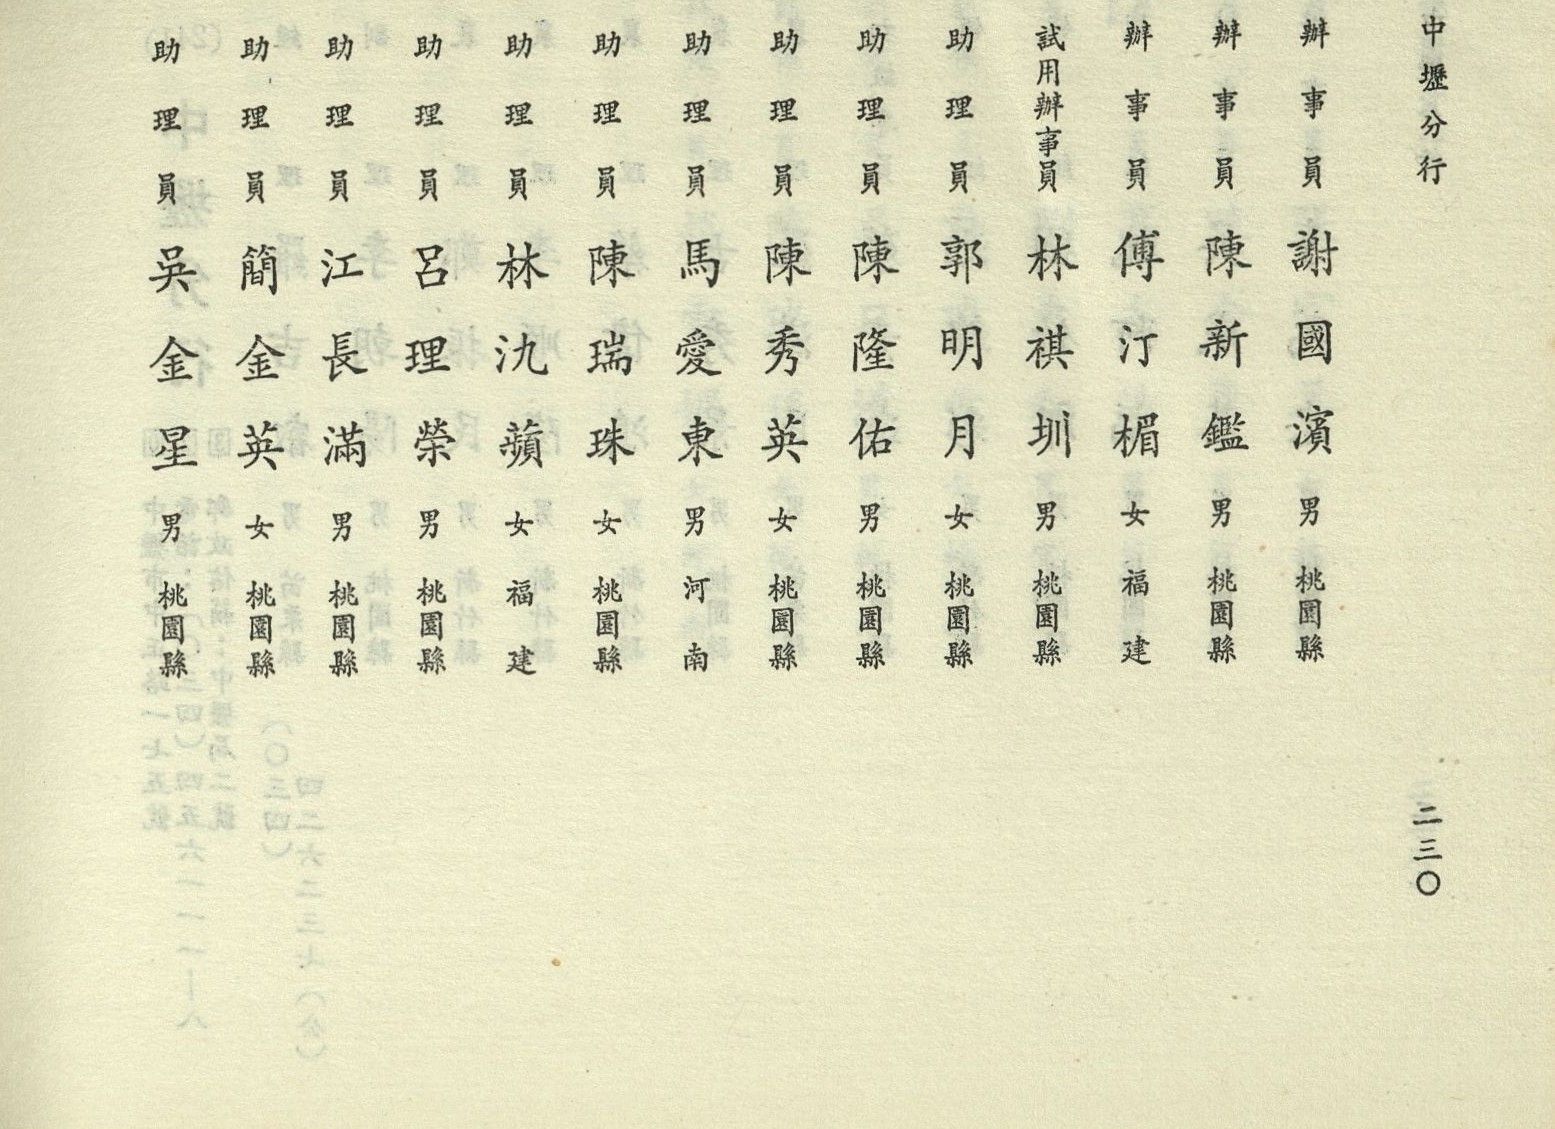 中壢分行
辦事員 謝國濱 男 桃園縣
辦事員 陳新鑑 男 桃園縣
辦事員 傅汀楣 女 福建
試用辦事員 林祺圳 男 桃園縣
助理員 郭明月 女 桃園縣
助理員 陳隆佑 男 桃園縣
助理員 陳秀英 女 桃園縣
助理員 馬愛東 男 河南
助理員 陳瑞珠 女 桃園縣
助理員 林氿蘋 女 福建
助理員 呂理榮 男 桃園縣
助理員 江長滿 男 桃園縣
助理員 簡金英 女 桃園縣
助理員 吳金星 男 桃園縣
二三〇